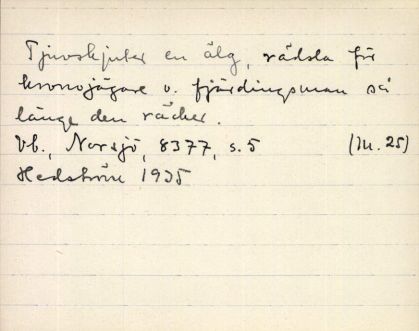 Tjuvskjuter en älg, rädsla för
kronojägare o. fjärdingsman så
länge den räcker.
Vb., Norsjö, 8377, s. 5 (M. 25)
Hedström 1935